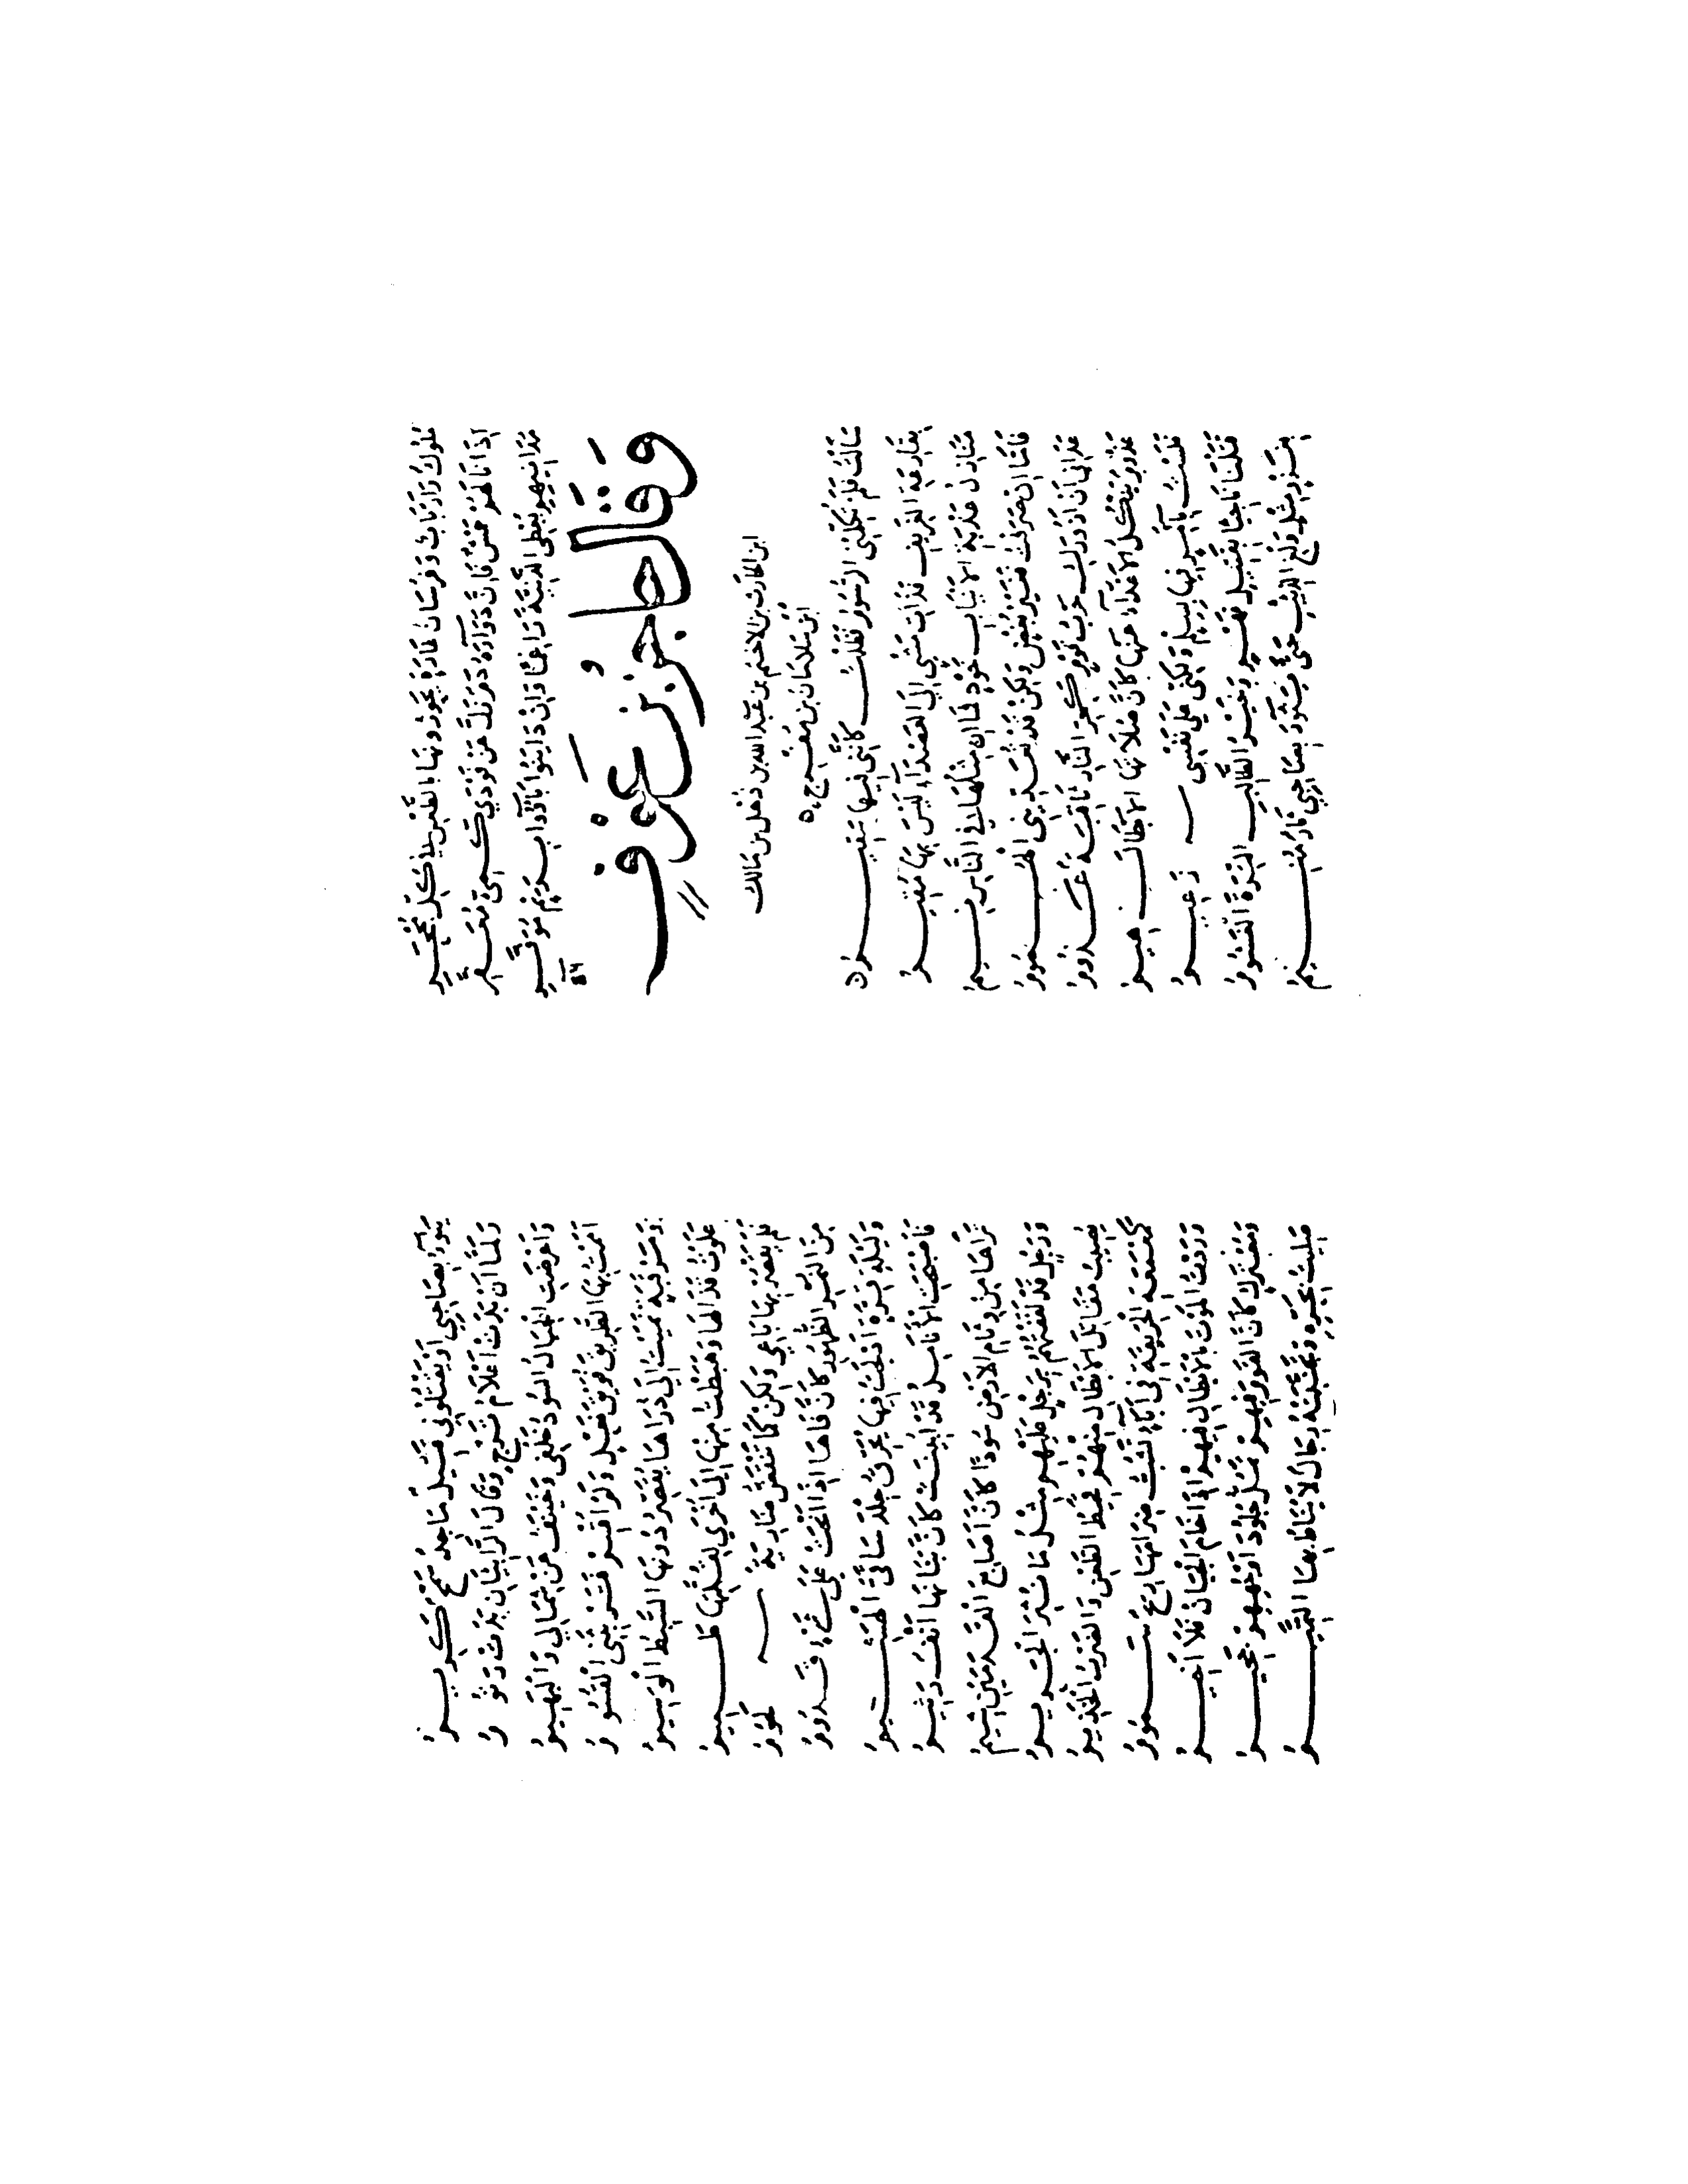 مُلُوكٌ وَاَرْبَابٌ وَفُرْسَانُ غَارَةٍ يَحُوزُونَهَا بِالطَّعْنِ فِي كُلِّ مَحْجَرِ
اِذَا نَالَهُمْ حَمْشٌ فَاِنَّ دَوَآءَهُ دَمٌ زَلَّ عَنْ فَوْدَيْ كَمِيٍّ مُعَفَّرِ
مُدَانِيهِمِ يُعْطِي الدَّنِيَّةَ رَاغِمًا وَاِنْ دَايَنُوا بَآؤُوا بِرَيْمٍ مُوَفَّرِ
وَقَالَ حَاجِزُ بْنُ عَوْفٍ
ابن الحارث بن الاخثم بن عبد الله بن ذهل بن مالك
ابن سلامان بن مفرج
سَاَلْتُ فَلَمْ تُكَلِّمْنِي الرُّسُومُ فَظَلْتُ كَاَنَّنِي فِيهَا سَقِيمُ
بِقَارِعَةِ الغَرِيفِ فَذَاتِ مَشْيٍ اِلَى العَصْدَآءِ لَيْسَ بِهَا مُقِيمُ
مَنَازِلُ عَذْبَةِ الاَنْيَابِ خَوْدٍ فَمَا اِنْ مِثْلُهَا فِي النَّاسِ نِيمُ
فَاَمَّا اِنْ صَرَمْتِ فَغَيْرُ بُغْضٍ وَلَكِنْ قَدْ تُعَدِّينِي الهُمُومُ
عَدَانِي اَنْ اَزُورَكِ حَرْبُ قَوْمٍ كَحَرِّ النَّارِ ثَاقِبَةٌ عَذُومُ
عَذُومٌ يَنْكُلُ الاَعْدَآءُ عَنْهَا كَاَنَّ صُلَاتَهَا الاَبْطَالَ هِيمُ
فَلَسْتُ بِآمِرٍ فِيهَا بِسِلْمٍ وَلَكِنِّي عَلَى نَفْسِي زَعِيمُ
قَتَلْنَا نَاجِيًا بِقَتِيلِ فَهْمٍ وَخَيْرُ الطَّالِبِ التِّرَةَ الغَشُومُ
بِغَزْوٍ مِثْلِ وَلْغِ الذِّئْبِ حَتَّى يَنُوءَ بِصَاحِبِي ثَارٌ مُنِيمُ
يَنُوءُ بِصَاحِبِي اَوْ يَقْتُلُونِي قَتِيلٌ مَاجِدٌ سَمْحٌ كَرِيمُ
وَلَمَّا اَنْ بَدَتْ اَعْلَامُ تَرْجٍ وَقَالَ الرَّابِئَانِ بَدَتْ رَثُومُ
وَاَعْرَضَتِ الجِبَالُ السُّودُ خَلْفِي وَخَيْنَفُ عَنْ شِمَالِي وَالْبَهِيمُ
اَمَمْتُ بِهَا الطَّرِيقَ فُوَيْقَ نَعْلٍ وَلَمْ اَقْسِمْ فَتَرْبُثَنِي الْقُسُومُ
وَمَرْقَبَةٍ نَمَيْتُ اِلَى ذُرَاهَا يُقَصِّرُ دُونَهَا السَّبْطُ الْوَسِيمُ
عَلَوْتُ قَذَالَهَا وَهَبَطْتُ مِنْهَا اِلَى اُخْرَى لِقُلَّتِهَا طَمِيمُ
فَلَمْ يَقْصُرْ بِهَا بَاعِي وَلَكِنْ كَمَا تَنْقَضُّ ضَارِيَةٌ لَحُومُ
مِنَ النُّمْرِ الظُّهُورِ كَاَنَّ فَاهَا اِذَا اَنْحَتْ عَلَى شَيْءٍ قَدُومُ
وَلَيْلَةِ قِرَّةٍ اَدْلَجْتُ فِيهَا يُحَرِّقُ جِلْدَ سَاقَيَّ الْهَشِيمُ
فَاَصْبَحَتِ الْاَنَامِلُ قَدْ اُبِينَتْ كَاَنَّ بَنَانَهَا اَنْفٌ رَثِيمُ
تَرَاهَا مِنْ وِثَامِ الاَرْضِ سُودًا كَاَنَّ اَصَابِعَ الْقَدَمَيْنِ شِيمُ
وَرَجْلٍ قَدْ لَفَفْتُهُمُ بِرَجْلٍ عَلَيْهِمْ مِثْلُ مَا نُثِرَ الْجَرِيمُ
يُصِيبُ مَقَاتِلَ الاَبْطَالِ مِنْهُمْ قَحِيطُ الطَّعْنِ وَالضَّرْبُ الْخَذِيمُ
كَمَعْمَعَةِ الحَرِيقَةِ فِي اَبَآءٍ تَشُبُّ ضِرَامَهَا رِيحٌ سَمُومُ
وَرَدْتُ المَوْتَ بِالاَبْطَالِ فِيهِمْ اِذَا خَامَ الجَبَانُ فَلَا اَخِيمُ
وَمُعْتَرَكٍ كَاَنَّ القَوْمَ فِيهِمْ تَبُلُّ جُلُودَ اَوْجُهِهِمْ جَحِيمُ
صَلِيتُ بِحَرِّهِ وَتَجَنَّبَتْهُ رِجَالٌ لَا يُنَاطُ بِهَا التَّمِيمُ